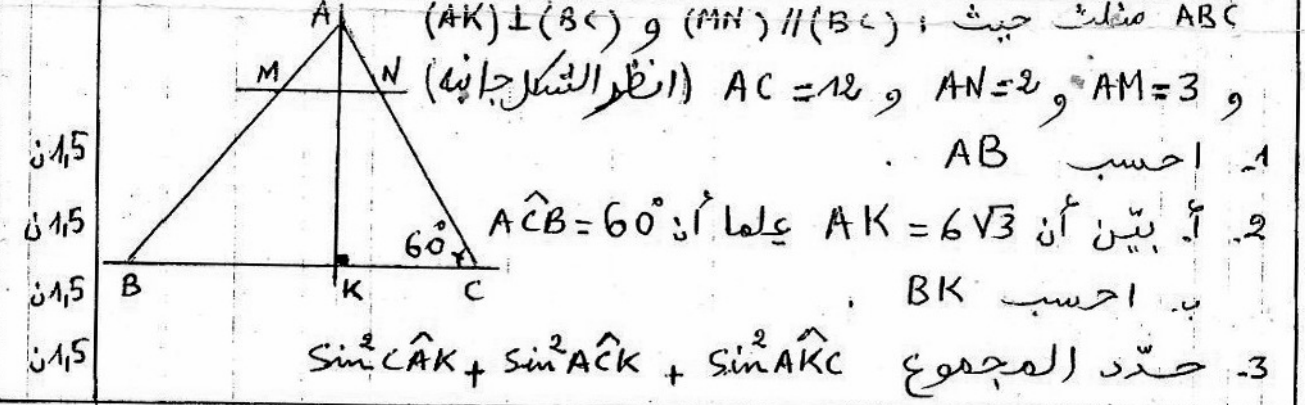 ABC مثلث حيث : (MN)//(BC) و (AK)⊥(BC)
و AM=3 و AN=2 و AC=12 (انظر الشكل جانبه)
1- احسب AB .
1,5ن
2- أ. بيّن أن AK=6√3 علما أن AĈB=60°
1,5ن
ب. احسب BK .
1,5ن
3- حدّد المجموع sin²CÂK + sin²AĈK + sin²AK̂C
1,5ن
A
M N
60°
B K C